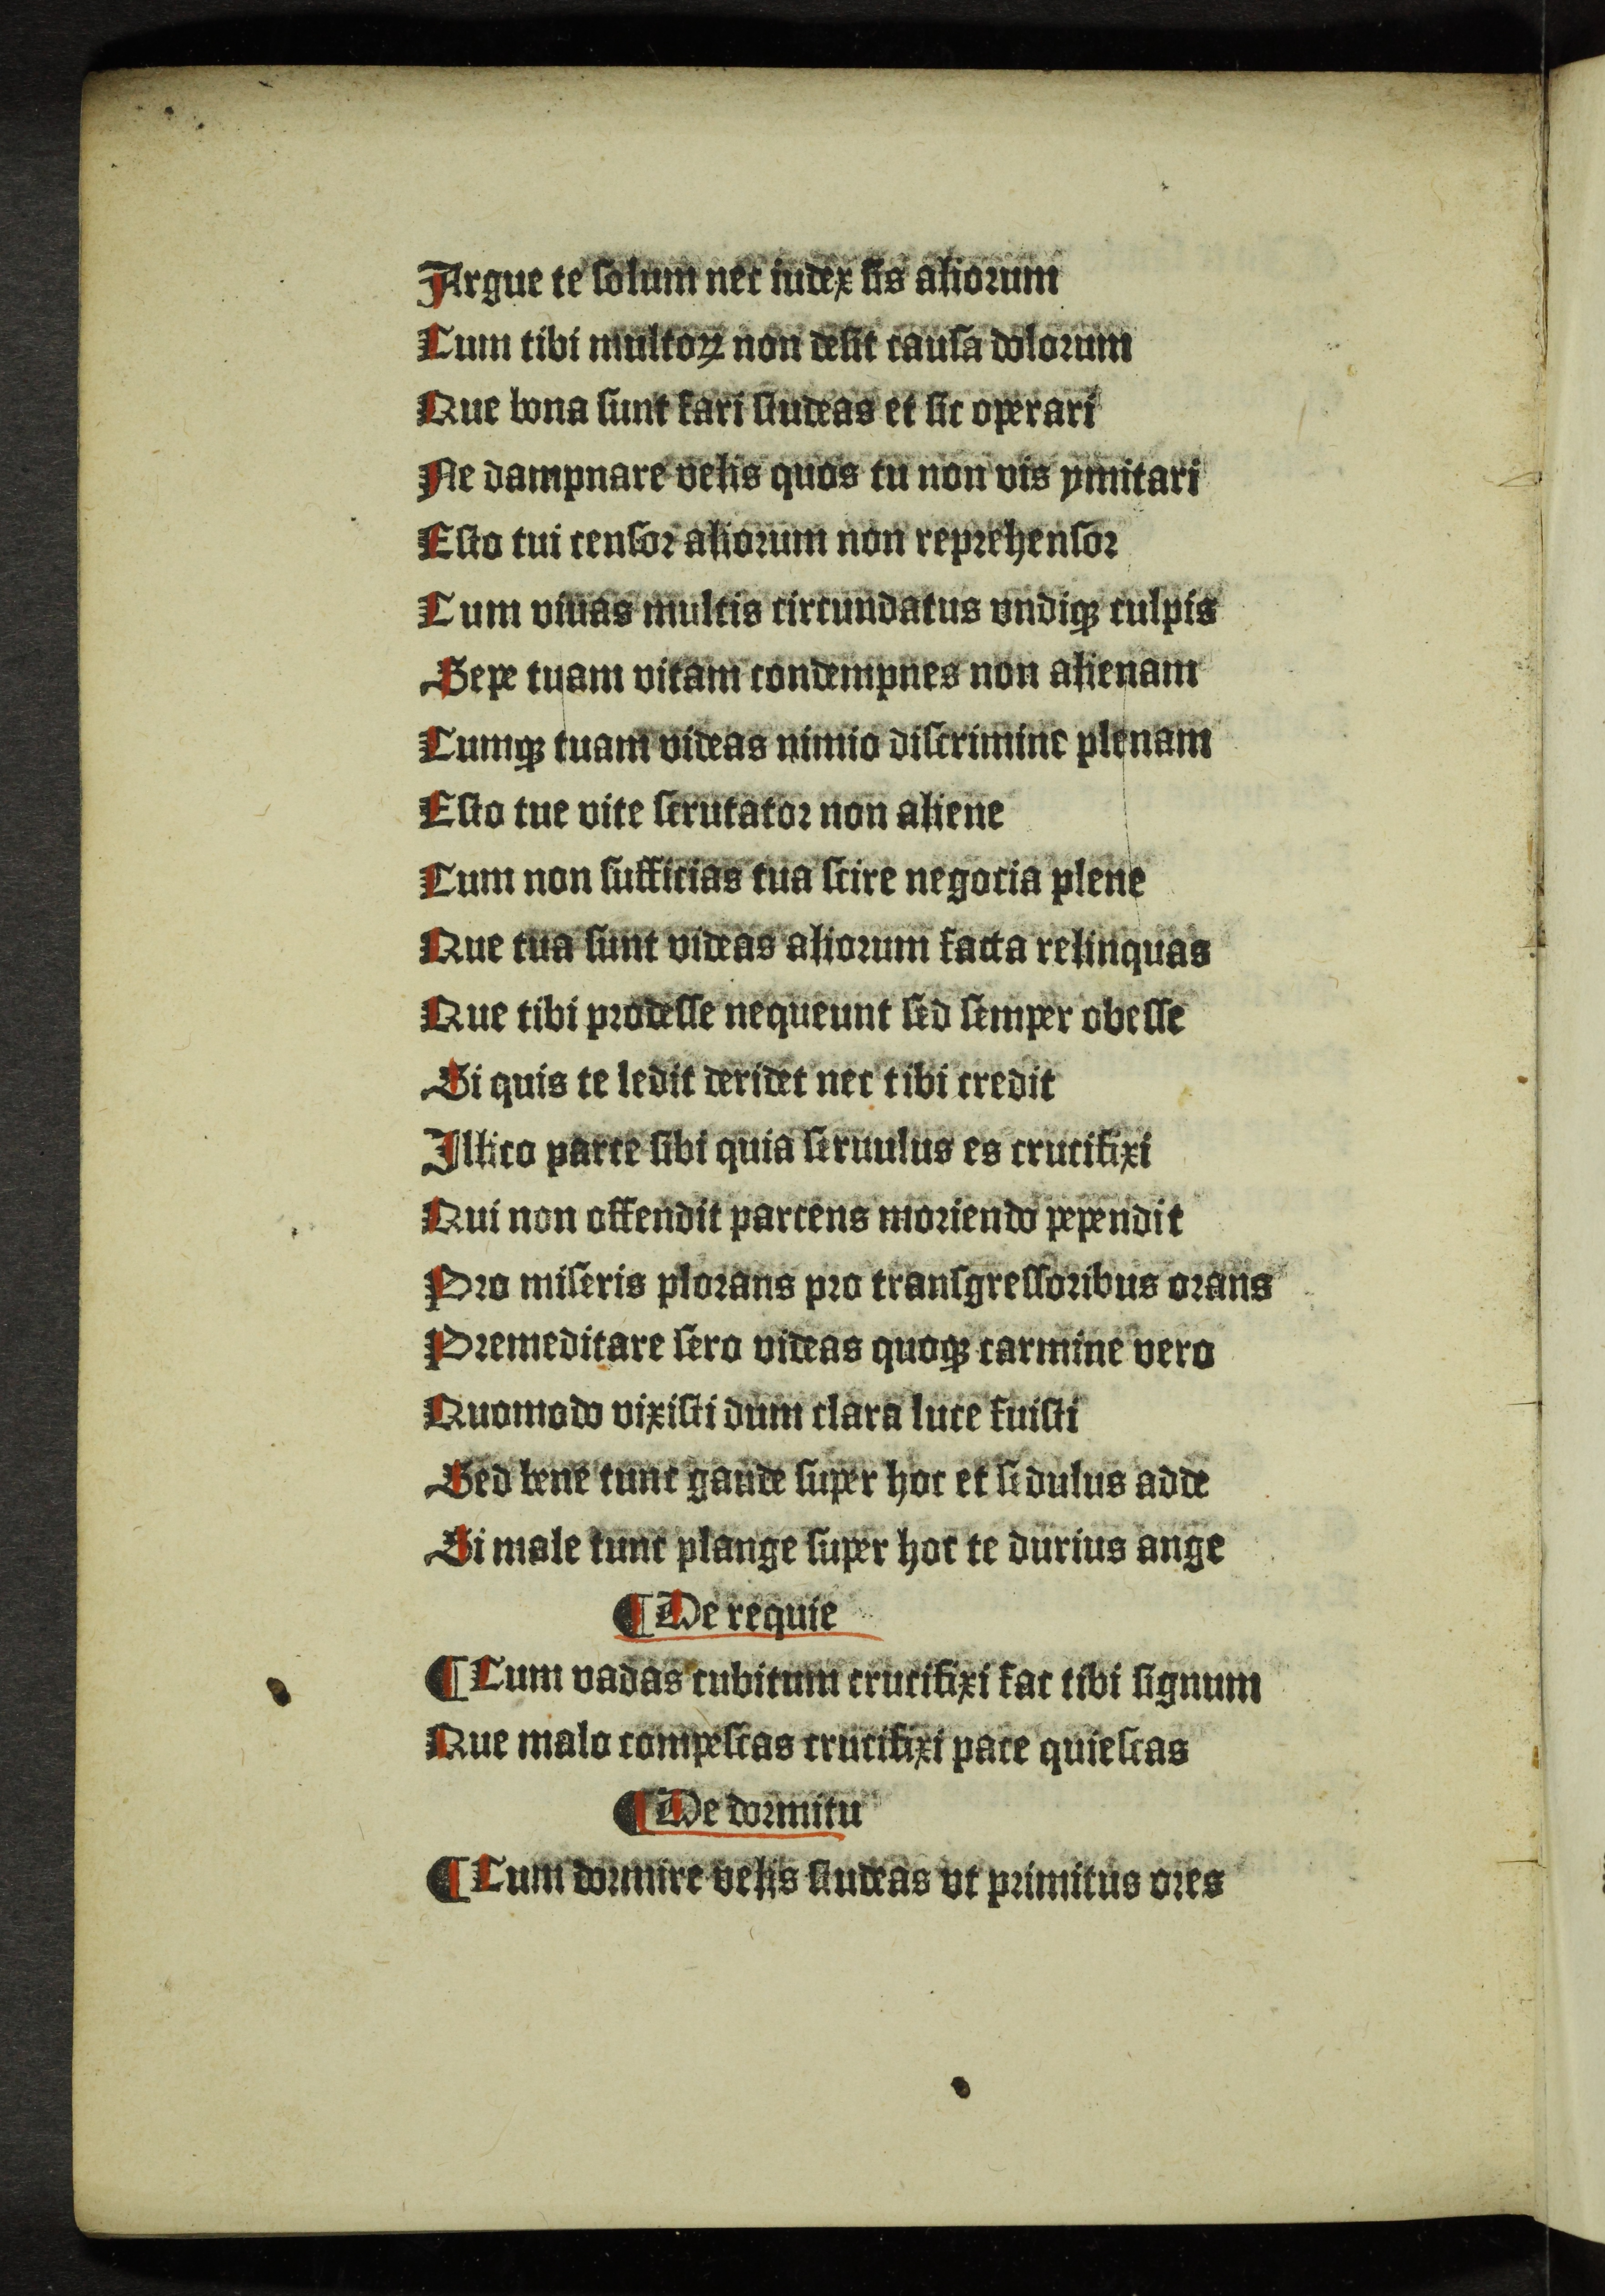 Argue te ſolum nec iudex ſis aliorum
Cum tibi multoꝝ non deſit cauſa dolorum
Que bona ſunt fari ſtudeas et ſic operari
Ne dampnare velis quos tu non vis ymitari
Eſto tui cenſor aliorum non reprehenſor
Cum viuas multis circundatus vndiqꝫ culpis
Sepe tuam vitam condempnes non alienam
Cumqꝫ tuam videas nimio diſcrimine plenam
Eſto tue vite ſcrutator non aliene
Cum non ſufficias tua ſcire negocia plene
Que tua ſunt videas aliorum facta relinquas
Que tibi prodeſſe nequeunt ſed ſemper obeſſe
Si quis te ledit deridet nec tibi credit
Illico parce ſibi quia ſeruulus es crucifixi
Qui non offendit parcens moriendo pependit
Pro miſeris plorans pro tranſgreſſoribus orans
Premeditare ſero videas quoqꝫ carmine vero
Quomodo vixiſti dum clara luce fuiſti
Sed bene tunc gaude ſuper hoc et ſedulus adde
Si male tunc plange ſuper hoc te durius ange
¶ De requie
¶ Cum vadas cubitum crucifixi fac tibi ſignum
Que malo compeſcas crucifixi pace quieſcas
¶ De dormitu
¶ Cum dormire velis ſtudeas vt primitus ores